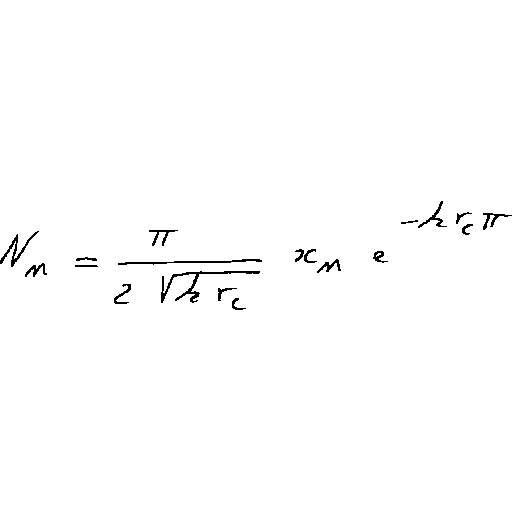 N_n = \frac{\pi}{2 \sqrt{k r_c}} x_n e^{-k r_c \pi}